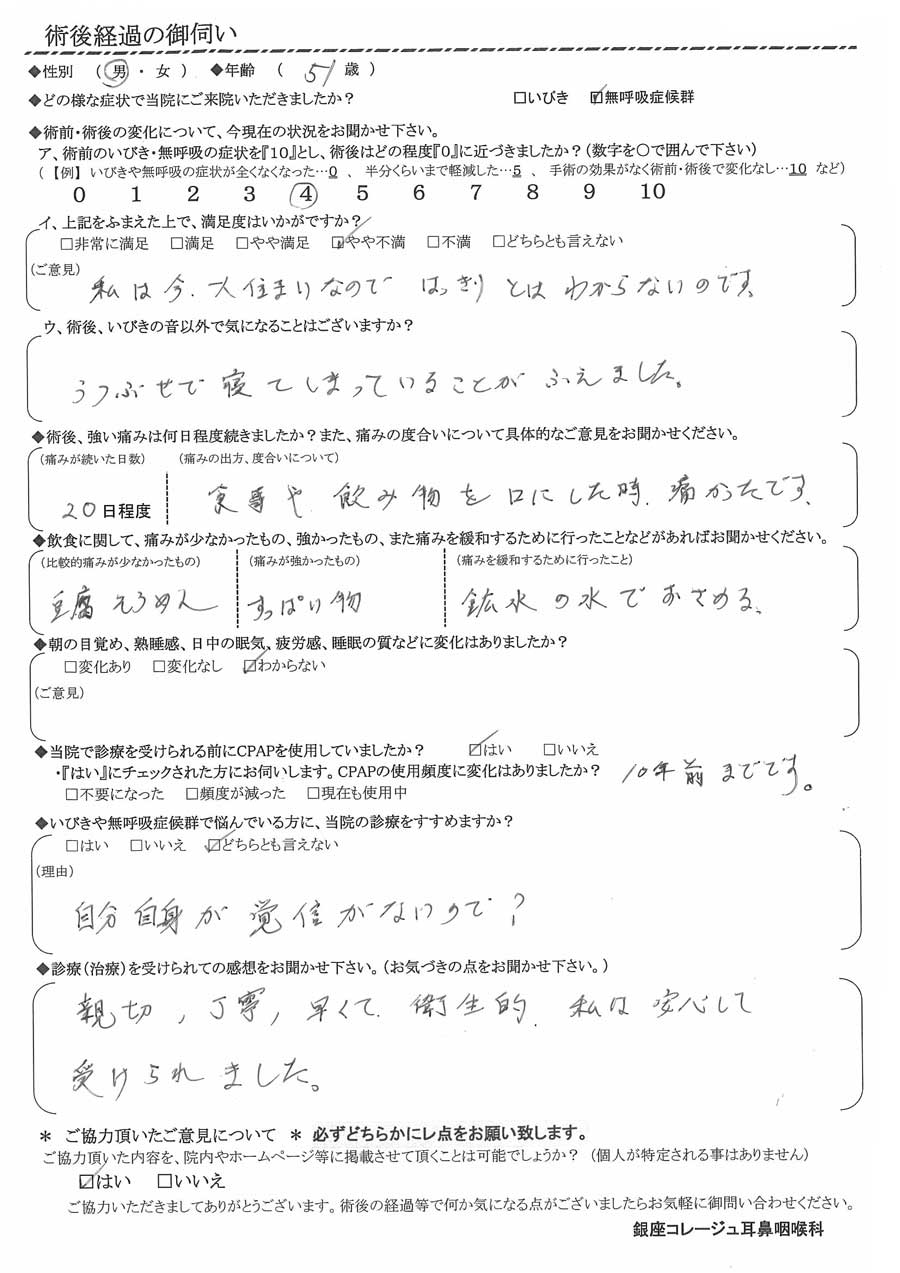 術後経過の御伺い
◆性別 ( 男 ・ 女 ) ◆年齢 ( 51 歳 )
◆どの様な症状で当院にご来院いただきましたか? □いびき ☑無呼吸症候群
◆術前・術後の変化について、今現在の状況をお聞かせ下さい。
ア、術前のいびき・無呼吸の症状を『10』とし、術後はどの程度『0』に近づきましたか?(数字を〇で囲んで下さい)
(【例】 いびきや無呼吸の症状が全くなくなった…0 、 半分くらいまで軽減した…5 、 手術の効果がなく術前・術後で変化なし…10 など)
0 1 2 3 4 5 6 7 8 9 10
イ、上記をふまえた上で、満足度はいかがですか?
□非常に満足 □満足 □やや満足 ☑やや不満 □不満 □どちらとも言えない
(ご意見)
私は今、一人住まいなので はっきり とは わからないのです、
ウ、術後、いびきの音以外で気になることはございますか?
うつぶせで 寝てしまっていることが ふえました。
◆術後、強い痛みは何日程度続きましたか?また、痛みの度合いについて具体的なご意見をお聞かせください。
(痛みが続いた日数) (痛みの出方、度合いについて)
20日程度 食事や 飲み物を口にした時、痛かったです、
◆飲食に関して、痛みが少なかったもの、強かったもの、また痛みを緩和するために行ったことなどがあればお聞かせください。
(比較的痛みが少なかったもの) (痛みが強かったもの) (痛みを緩和するために行ったこと)
豆腐 そうめん すっぱい物 鉱水の水でおさめる、
◆朝の目覚め、熟睡感、日中の眠気、疲労感、睡眠の質などに変化はありましたか?
□変化あり □変化なし ☑わからない
(ご意見)
◆当院で診療を受けられる前にCPAPを使用していましたか? ☑はい □いいえ
・『はい』にチェックされた方にお伺いします。CPAPの使用頻度に変化はありましたか? 10年前までです。
□不要になった □頻度が減った □現在も使用中
◆いびきや無呼吸症候群で悩んでいる方に、当院の診療をすすめますか?
□はい □いいえ ☑どちらとも言えない
(理由)
自分自身が 覚信がないので?
◆診療(治療)を受けられての感想をお聞かせ下さい。(お気づきの点をお聞かせ下さい。)
親切, 丁寧, 早くて、衛生的、私は安心して
受けられました。
* ご協力頂いたご意見について * 必ずどちらかにレ点をお願い致します。
ご協力頂いた内容を、院内やホームページ等に掲載させて頂くことは可能でしょうか? (個人が特定される事はありません)
☑はい □いいえ
ご協力いただきましてありがとうございます。術後の経過等で何か気になる点がございましたらお気軽に御問い合わせください。
銀座コレージュ耳鼻咽喉科